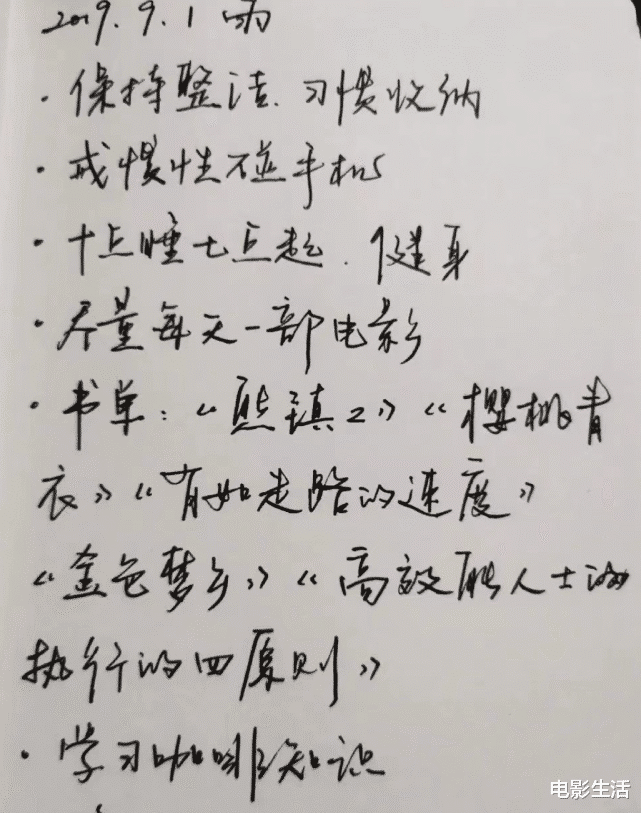 2019.9.1 雨
·保持整洁、习惯收纳
·戒惯性碰手机
·十点睡七点起.健身
·尽量每天一部电影
·书单:《熊镇2》《樱桃青
衣》《有如走路的速度》
《金色梦乡》《高效能人士的
执行的四原则》
·学习咖啡知识
电影生活